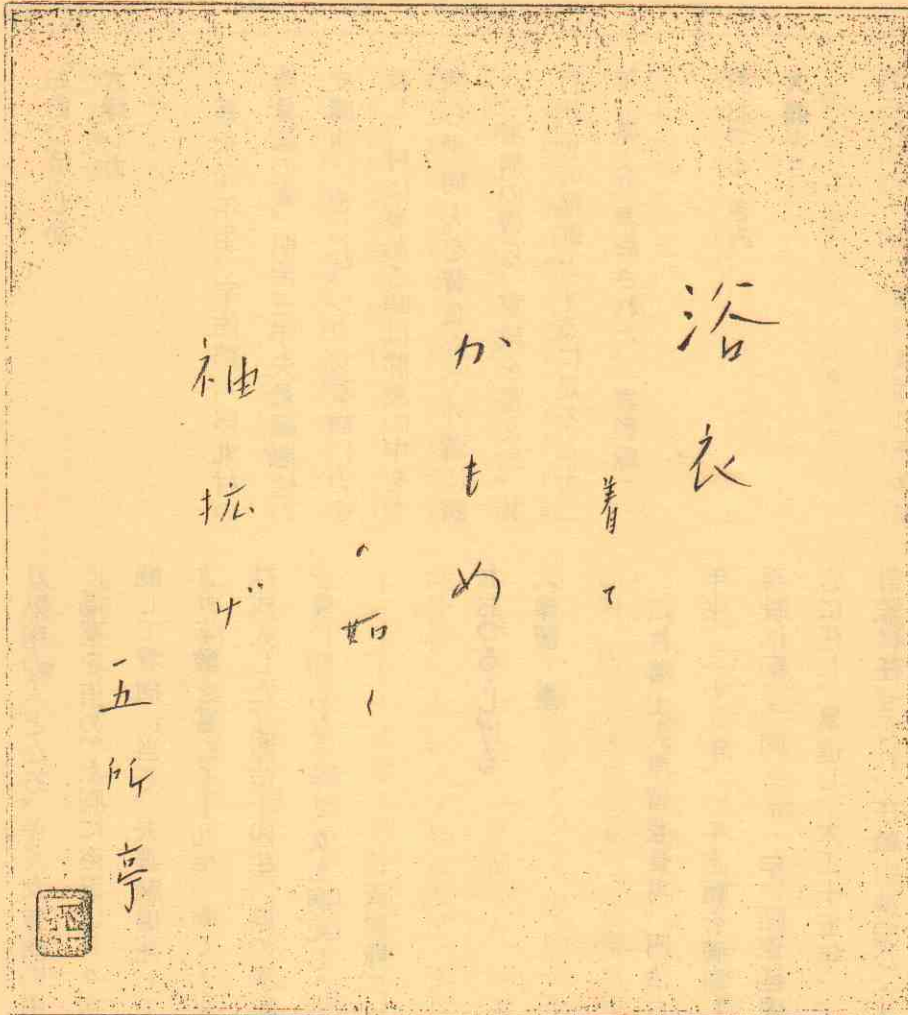 浴衣
着て
かもめ
の如く
袖拡げ
五所亭